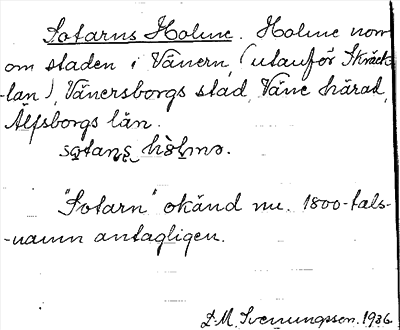 Sotarns Holme. Holme norr
om staden i Vänern, (utanför Skräck-
-lan), Vänersborgs stad, Väne härad,
Älfsborgs län.
"Sotarn" okänd nu. 1800-tals-
-namn antagligen.
L. M. Svenungsson. 1936.